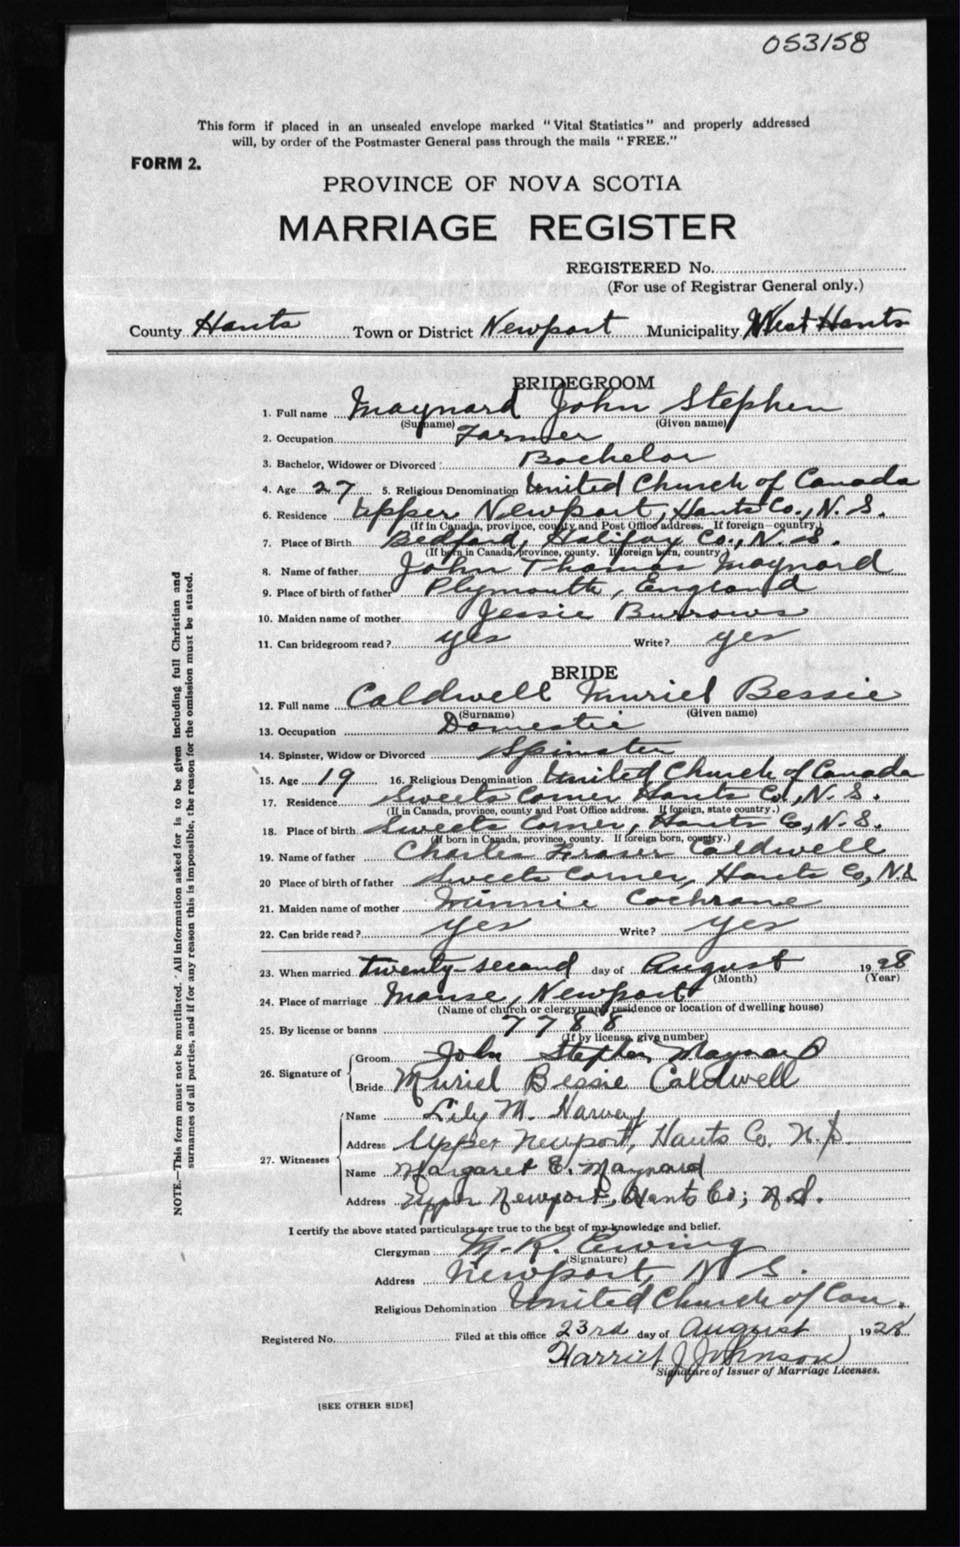 053158
This form if placed in an unsealed envelope marked "Vital Statistics" and properly addressed
will, by order of the Postmaster General pass through the mails "FREE."
FORM 2.
PROVINCE OF NOVA SCOTIA
MARRIAGE REGISTER
REGISTERED No.
(For use of Registrar General only.)
County Hants Town or District Newport Municipality West Hants
BRIDEGROOM
1. Full name Maynard John Stephen
(Surname) (Given name)
2. Occupation Farmer
3. Bachelor, Widower or Divorced: Bachelor
4. Age 27 5. Religious Denomination United Church of Canada
6. Residence Upper Newport, Hants Co., N.S.
(If in Canada, province, county and Post Office address. If foreign—country)
7. Place of Birth Bedford, Halifax Co., N.S.
(If born in Canada, province, county. If foreign born, country)
8. Name of father John Thomas Maynard
9. Place of birth of father Plymouth, England
10. Maiden name of mother Jessie Burrows
11. Can bridegroom read? yes Write? yes
BRIDE
12. Full name Caldwell Muriel Bessie
(Surname) (Given name)
13. Occupation Domestic
14. Spinster, Widow or Divorced Spinster
15. Age 19 16. Religious Denomination United Church of Canada
17. Residence Sweets Corner Hants Co., N.S.
(If in Canada, province, county and Post Office address. If foreign, state country.)
18. Place of birth Sweets Corner, Hants Co, N.S.
(If born in Canada, province, county. If foreign born, country.)
19. Name of father Charles Fraser Caldwell
20 Place of birth of father Sweets Corner, Hants Co, N.S
21. Maiden name of mother Minnie Cochrane
22. Can bride read? Yes Write? Yes
23. When married twenty-second day of August 1928
(Month) (Year)
24. Place of marriage Manse, Newport
(Name of church or clergyman's residence or location of dwelling house)
25. By license or banns 7788
(If by license, give number)
26. Signature of
Groom John Stephen Maynard
Bride Muriel Bessie Caldwell
27. Witnesses
Name Lily M. Harvey
Address Upper Newport, Hants Co. N.S.
Name Margaret E. Maynard
Address Upper Newport, Hants Co; N.S.
I certify the above stated particulars are true to the best of my knowledge and belief.
Clergyman M. R. Ewing
(Signature)
Address Newport, N S.
Religious Denomination United Church of Can.
Registered No. Filed at this office 23rd day of August 1928
Harriet J Johnson
Signature of Issuer of Marriage Licenses.
[SEE OTHER SIDE]
NOTE.—This form must not be mutilated. All information asked for is to be given including full Christian and
surnames of all parties, and if for any reason this is impossible, the reason for the omission must be stated.